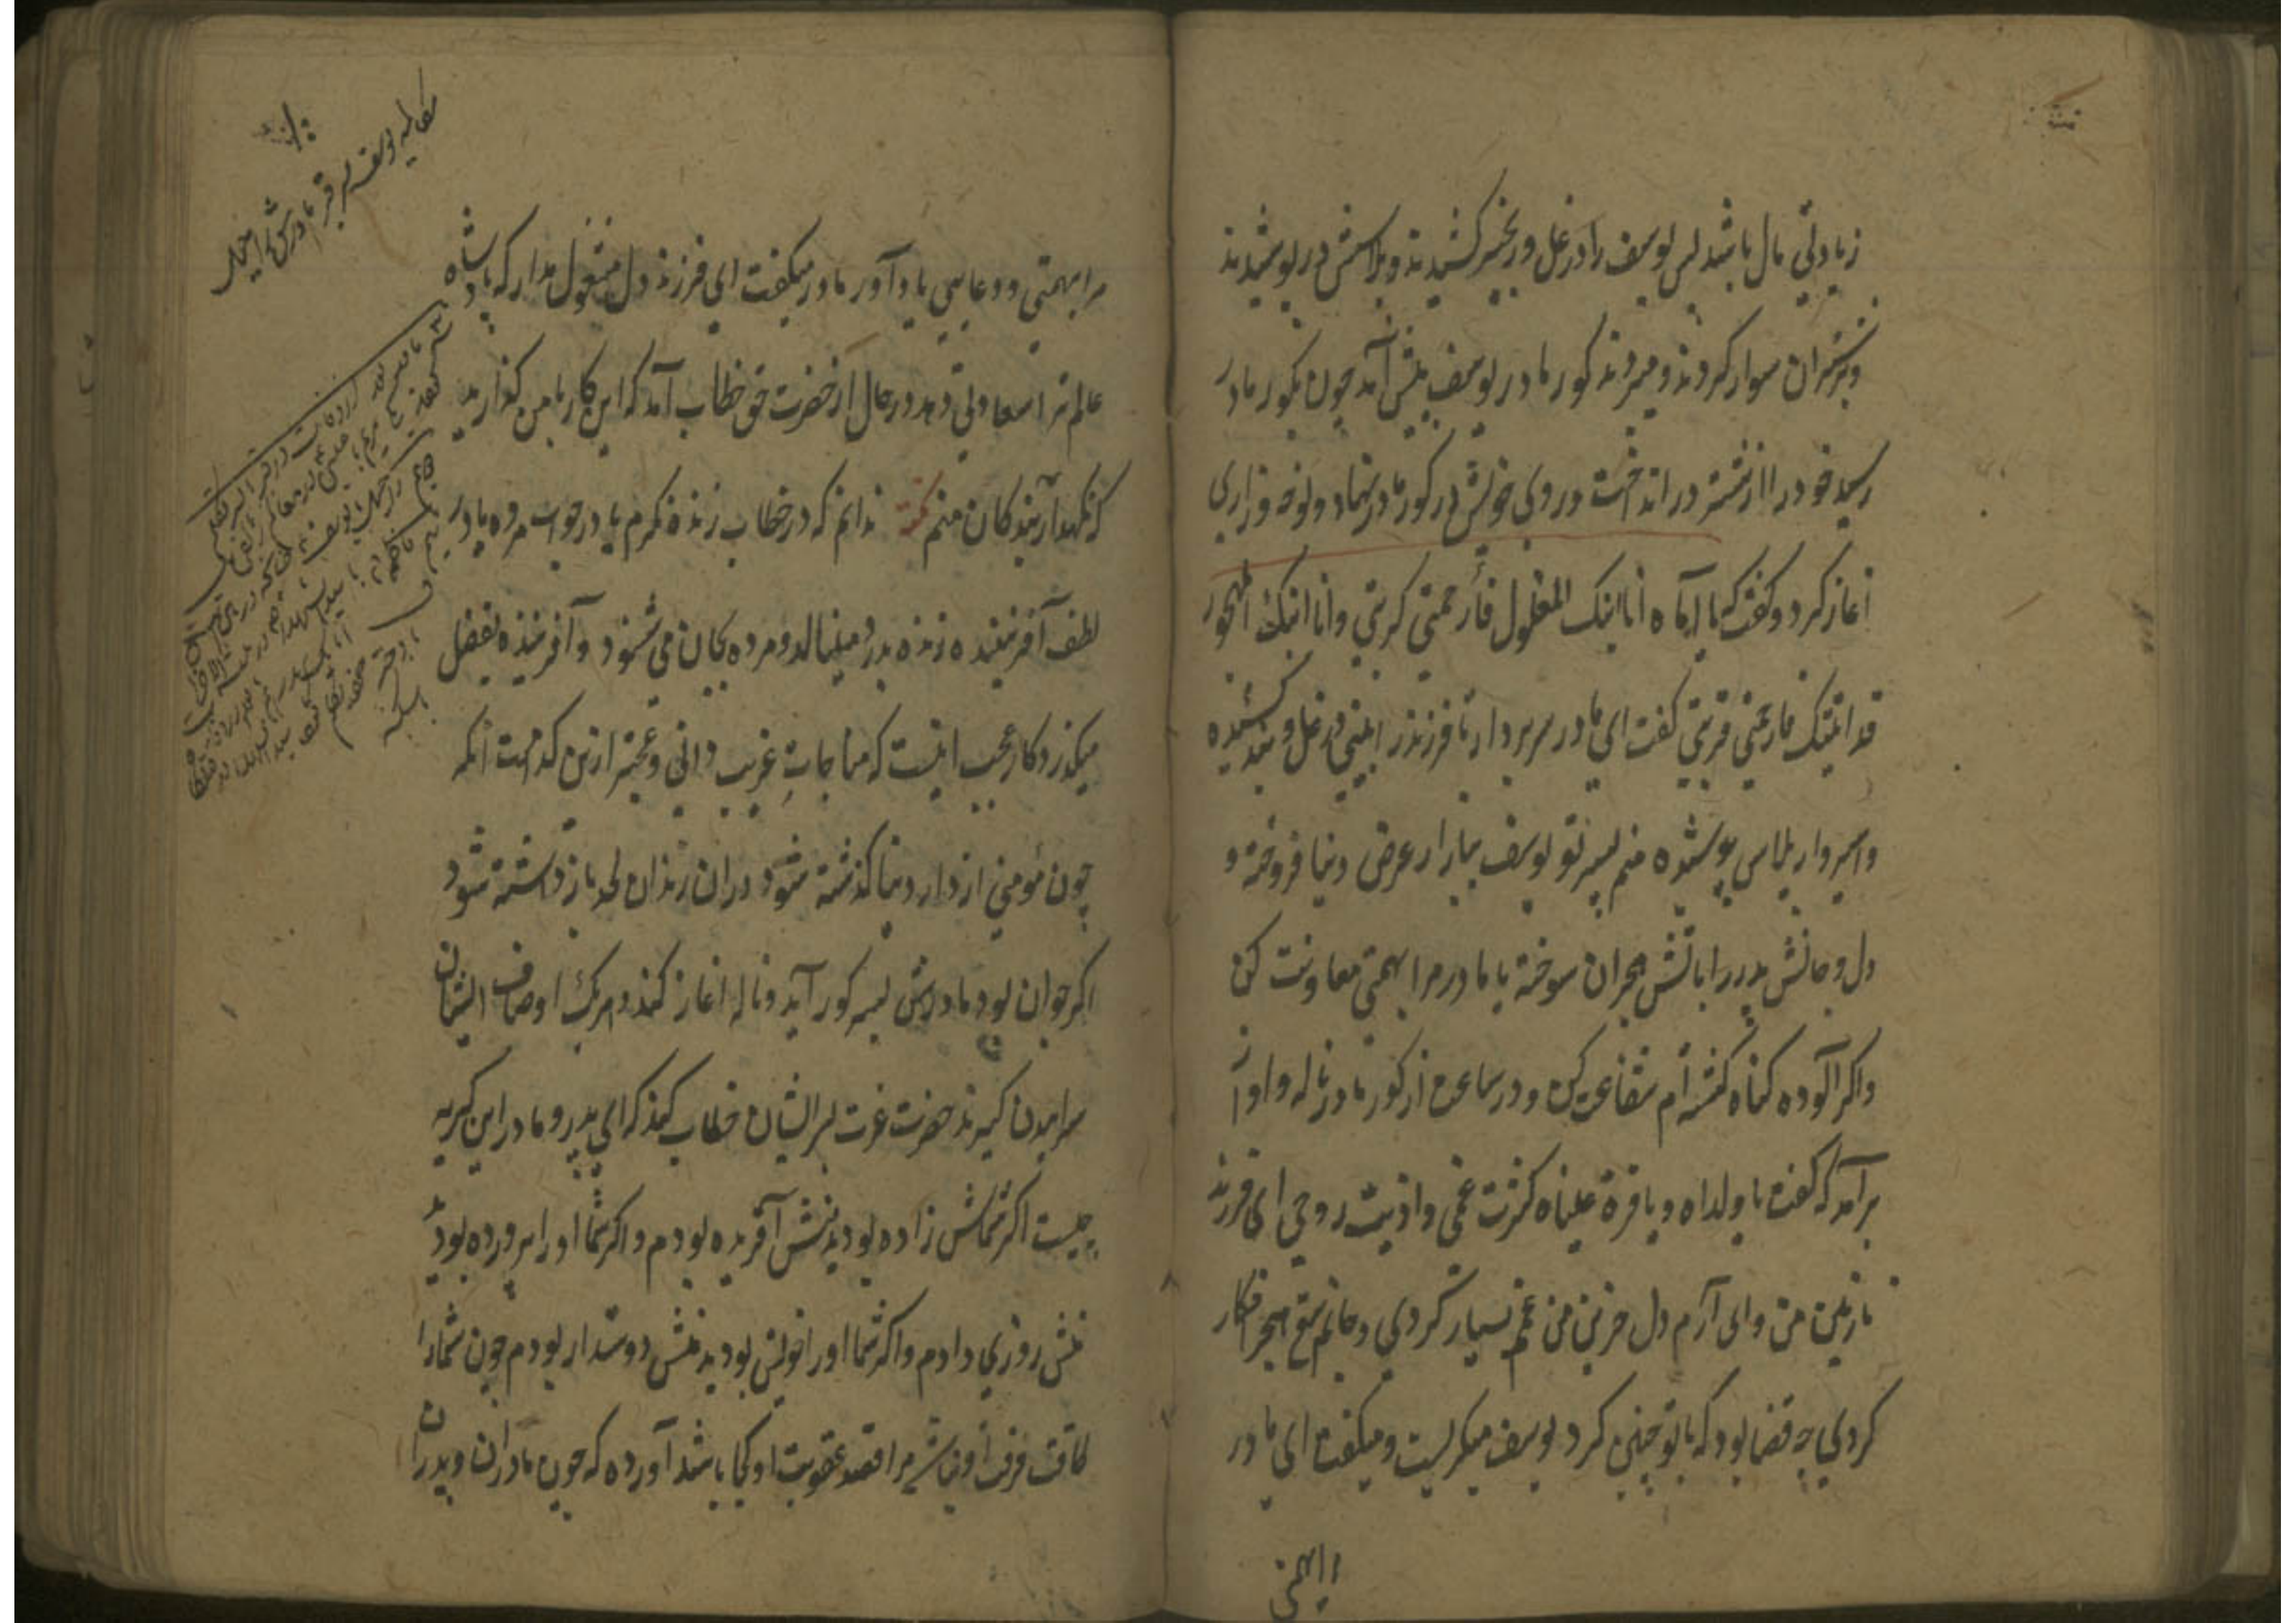 زیادتی مال باشد پس یوسف را در غل و زنجیر کشیدند و پلاسش در پوشیدند
و بر شتران سوار کردند و میبردند گور مادر یوسف پیش آمد چون بگور مادر
رسید خود را از شتر در انداخت و روی خویش بر گور مادر نهاد و نوحه و زاری
آغاز کرد و گفت که یا اماه انا ابنک المغلول فارحمی کربتی وانا ابنک المهجور
قد اتیتک فارحمنی قربتی گفت ای مادر سر بردار تا فرزند را بینی در غل و بند کشیده
و اسیروار پلاس پوشیده منم پسر تو یوسف ببازار عرض دنیا فروخته و
دل و جانش پدر را باتش هجران سوخته یا مادر مرا بهمتی معاونت کن
و اگر آلوده گناه گشته ام شفاعت کن و در ساعت از گور مادر ناله و آواز
برآمد که گفت یا ولداه و یا قرة عیناه کثرت غمی و اذیت روحی ای فرزند
نازنین من و ای آرام دل حزین من غم بسیار کردی و جانم بتیغ هجر افکار
کردی چه قضا بود که با تو چنین کرد یوسف میگریست و میگفت ای مادر
مرا بهمتی
مرا بهمتی و دعایی یاد آور مادر میگفت ای فرزند دل مشغول مدار که پادشاه
عالم ترا سعادتی دهد در حال از حضرت حق خطاب آمد که این کار با من گذارید
که نگهدار بندگان منم نکته ندانم که در خطاب زنده نگرم یا در جواب مرده یا در
لطف آفریننده زنده بدرد مینالد و مرده بجان می شنود و آفریننده بفضل
میگذرد کار عجب اینست که مناجات غریب دانی و عجبتر ازین کدامست آنکه
چون مؤمنی از دار دنیا گذشته شود در ان زندان لحد بازداشته شود
اگر جوان بود مادرش بسر گور آید و ناله آغاز کند و هر یک اوصاف ایشان
سراییدن گیرند حضرت عزت بر ایشان خطاب کند که ای پدر و مادر این گریه
چیست اگر شماش زاده بودید منش آفریده بودم و اگر شما او را پرورده بودید
منش روزی دادم و اگر شما او را خویش بودید منش دوستدار بودم چون شما را
طاقت فرقت او نباشد مرا قصد عقوبت او کجا باشد آورده که چون مادران و پدران